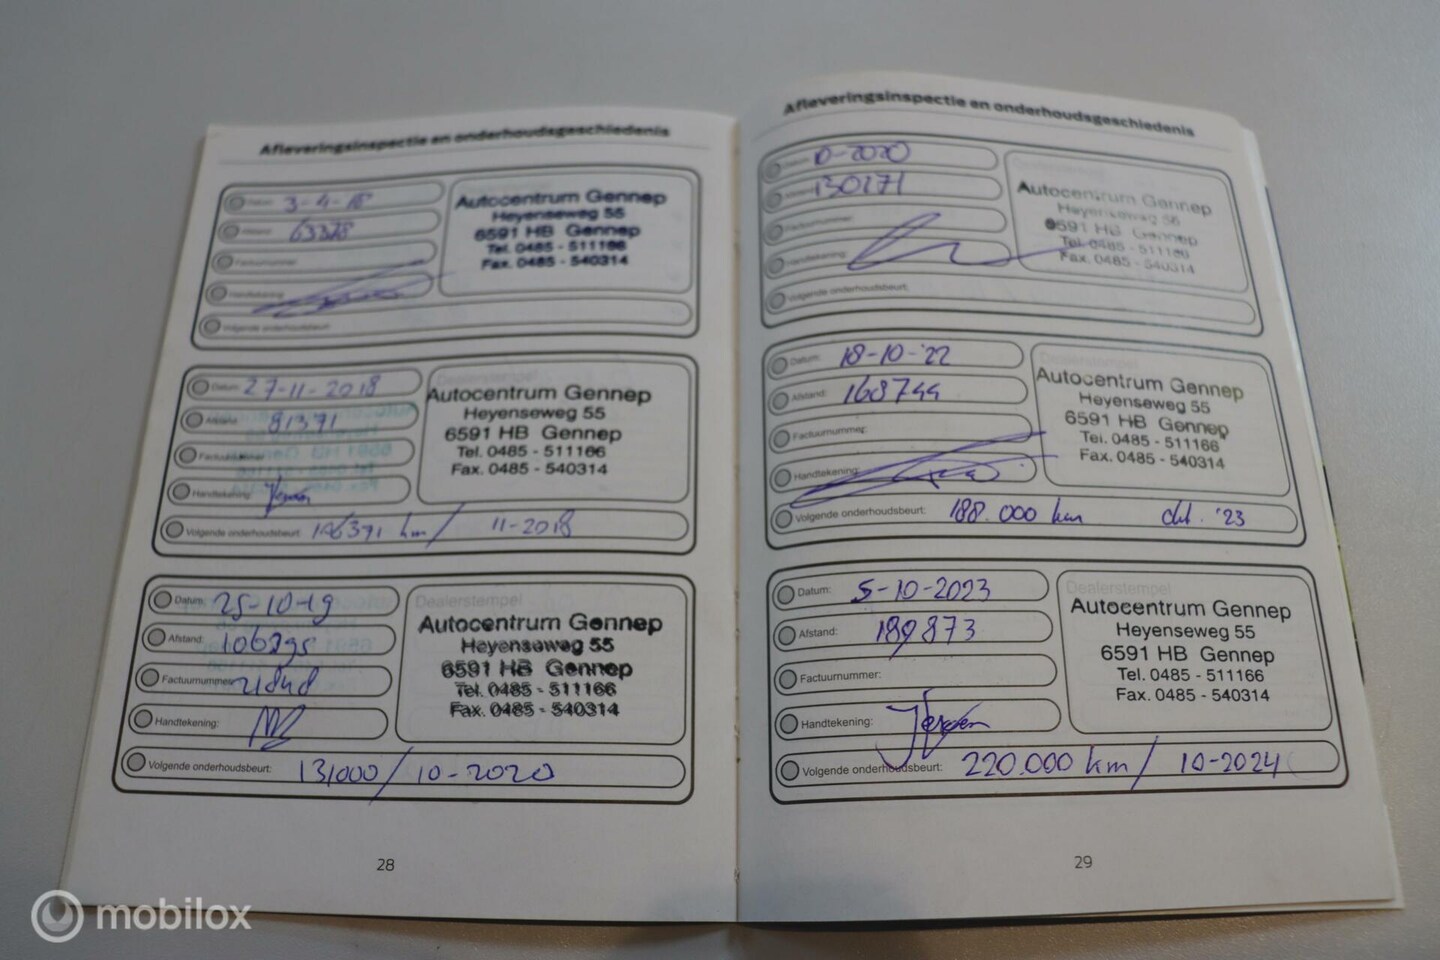 Afleveringsinspectie en onderhoudsgeschiedenis
Datum: 3-4-18
Afstand: 63378
Factuurnummer:
Handtekening:
Volgende onderhoudsbeurt:
Autocentrum Gennep
Heyenseweg 55
6591 HB Gennep
Tel. 0485 - 511166
Fax. 0485 - 540314
Datum: 27-11-2018
Afstand: 81391
Factuurnummer:
Handtekening:
Volgende onderhoudsbeurt: 106391 km / 11-2018
Dealerstempel
Autocentrum Gennep
Heyenseweg 55
6591 HB Gennep
Tel. 0485 - 511166
Fax. 0485 - 540314
Datum: 25-10-19
Afstand: 106295
Factuurnummer:
Handtekening:
Volgende onderhoudsbeurt: 131000 / 10-2020
Dealerstempel
Autocentrum Gennep
Heyenseweg 55
6591 HB Gennep
Tel. 0485 - 511166
Fax. 0485 - 540314
28
Afleveringsinspectie en onderhoudsgeschiedenis
Datum: 10-2020
Afstand: 130271
Factuurnummer:
Handtekening:
Volgende onderhoudsbeurt:
Dealerstempel
Autocentrum Gennep
Heyenseweg 55
6591 HB Gennep
Tel. 0485 - 511166
Fax. 0485 - 540314
Datum: 18-10-'22
Afstand: 168744
Factuurnummer:
Handtekening:
Volgende onderhoudsbeurt: 188.000 km okt. '23
Dealerstempel
Autocentrum Gennep
Heyenseweg 55
6591 HB Gennep
Tel. 0485 - 511166
Fax. 0485 - 540314
Datum: 5-10-2023
Afstand: 189873
Factuurnummer:
Handtekening:
Volgende onderhoudsbeurt: 220.000 km / 10-2024
Dealerstempel
Autocentrum Gennep
Heyenseweg 55
6591 HB Gennep
Tel. 0485 - 511166
Fax. 0485 - 540314
29
mobilox